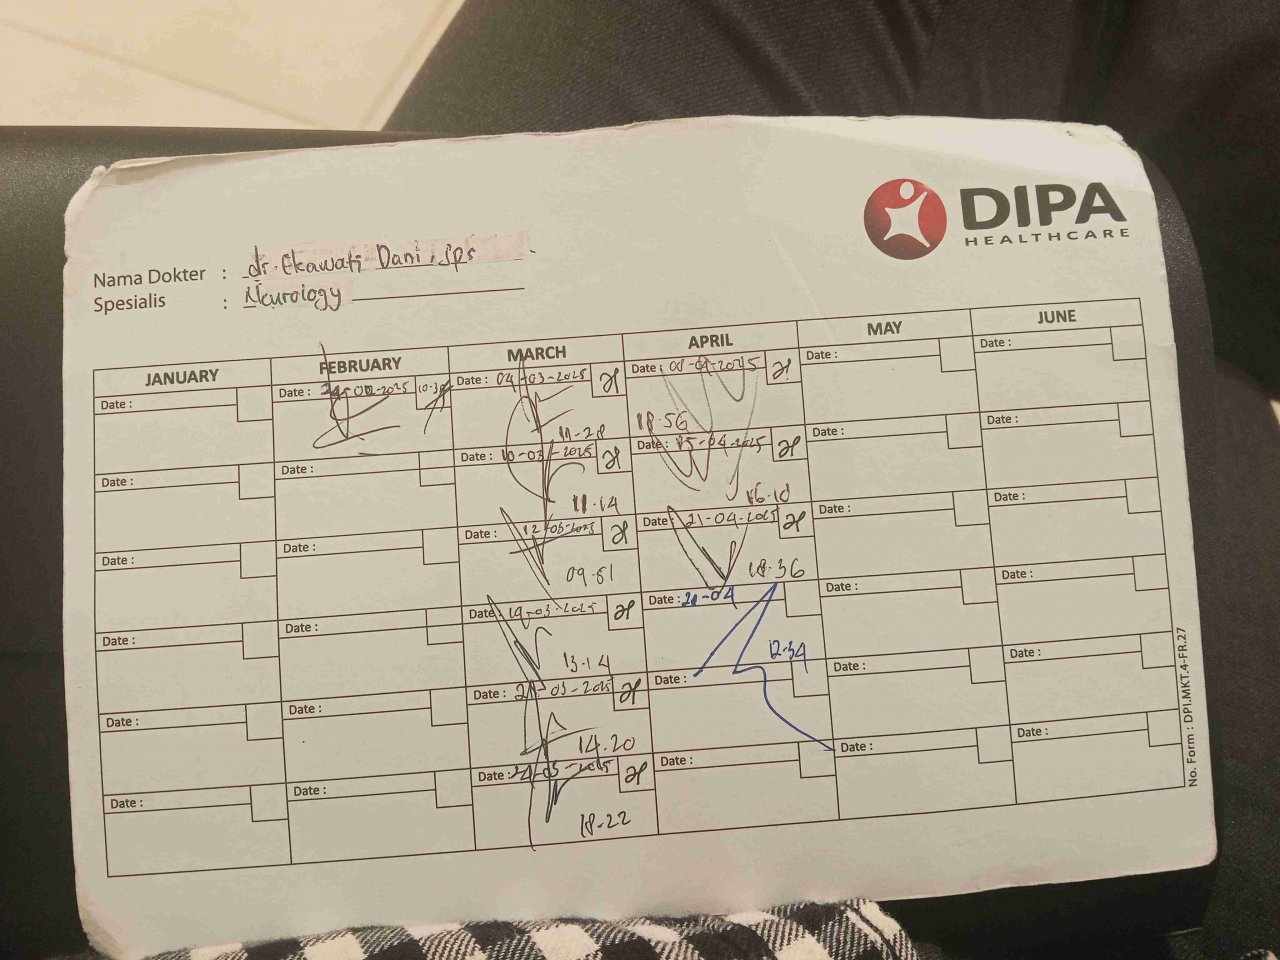 DIPA
HEALTHCARE
Nama Dokter : dr. Ekawati Dani, Sps
Spesialis : Neurology
JANUARY FEBRUARY MARCH APRIL MAY JUNE
Date : Date : -2025 10-39 Date : 04-03-2025 Date : -2025 Date : Date :
11-28 18-56
Date : Date : Date : 10-03-2025 Date : 15-04-2025 Date : Date :
11-14 16-10
Date : Date : Date : 12-03-2025 Date : 21-04-2025 Date : Date :
09-51 18-36
Date : Date : Date : 19-03-2025 Date : Date : Date :
13-14 12-34
Date : Date : Date : -03-2025 Date : Date : Date :
14.20
Date : Date : Date : 24-03-2025 Date : Date : Date :
18-22
No. Form : DPI.MKT.4-FR.27